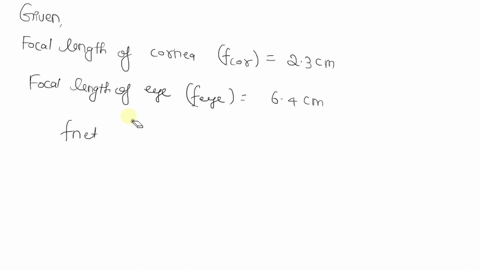 Given,
Focal length of cornea (fcor) = 2.3 cm
Focal length of eye (feye) = 6.4 cm
fnet